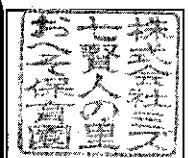 株式会社ミズ
七賢人の里
おへそ保育園